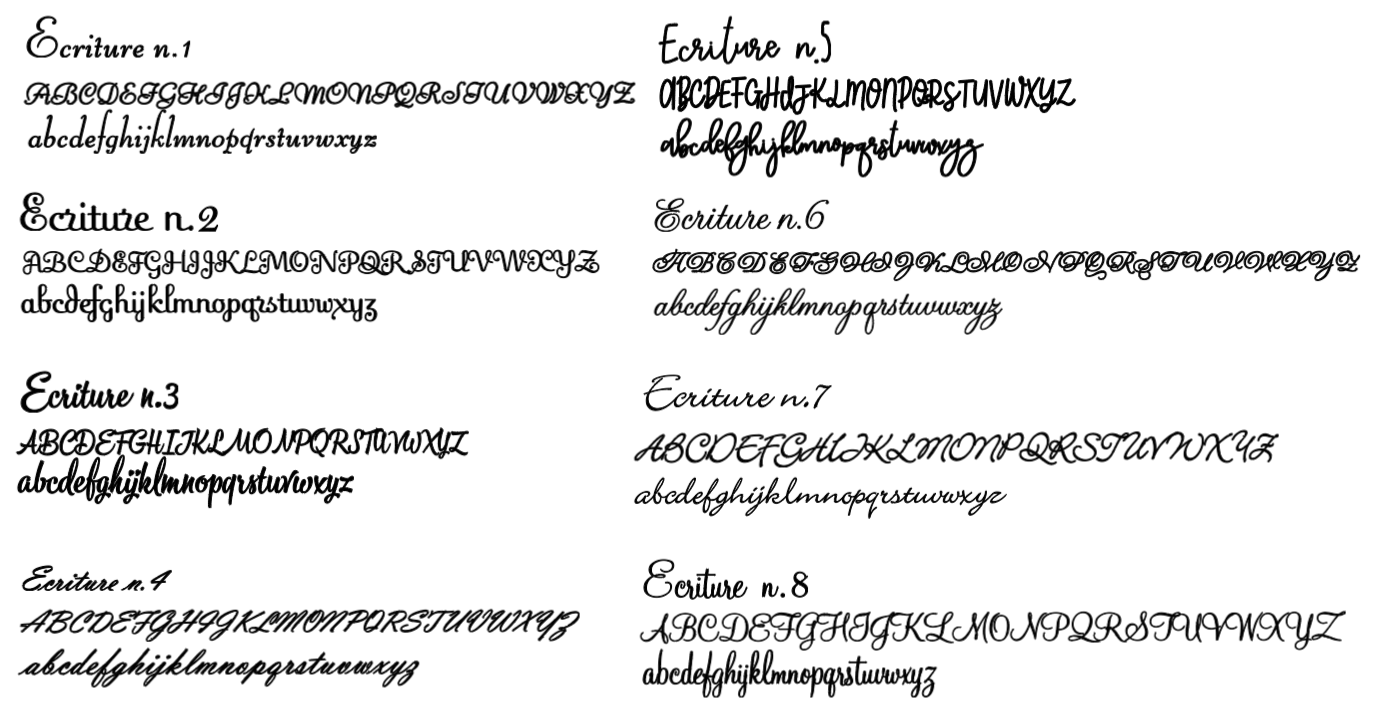 Ecriture n.1
ABCDEFGHIJKLMONPQRSTUVWXYZ
abcdefghijklmnopqrstuvwxyz
Ecriture n.2
ABCDEFGHIJKLMONPQRSTUVWXYZ
abcdefghijklmnopqrstuvwxyz
Ecriture n.3
ABCDEFGHIJKLMONPQRSTUVWXYZ
abcdefghijklmnopqrstuvwxyz
Ecriture n.4
ABCDEFGHIJKLMONPQRSTUVWXYZ
abcdefghijklmnopqrstuvwxyz
Ecriture n.5
ABCDEFGHIJKLMONPQRSTUVWXYZ
abcdefghijklmnopqrstuvwxyz
Ecriture n.6
ABCDEFGHIJKLMONPQRSTUVWXYZ
abcdefghijklmnopqrstuvwxyz
Ecriture n.7
ABCDEFGHIJKLMONPQRSTUVWXYZ
abcdefghijklmnopqrstuvwxyz
Ecriture n.8
ABCDEFGHIJKLMONPQRSTUVWXYZ
abcdefghijklmnopqrstuvwxyz